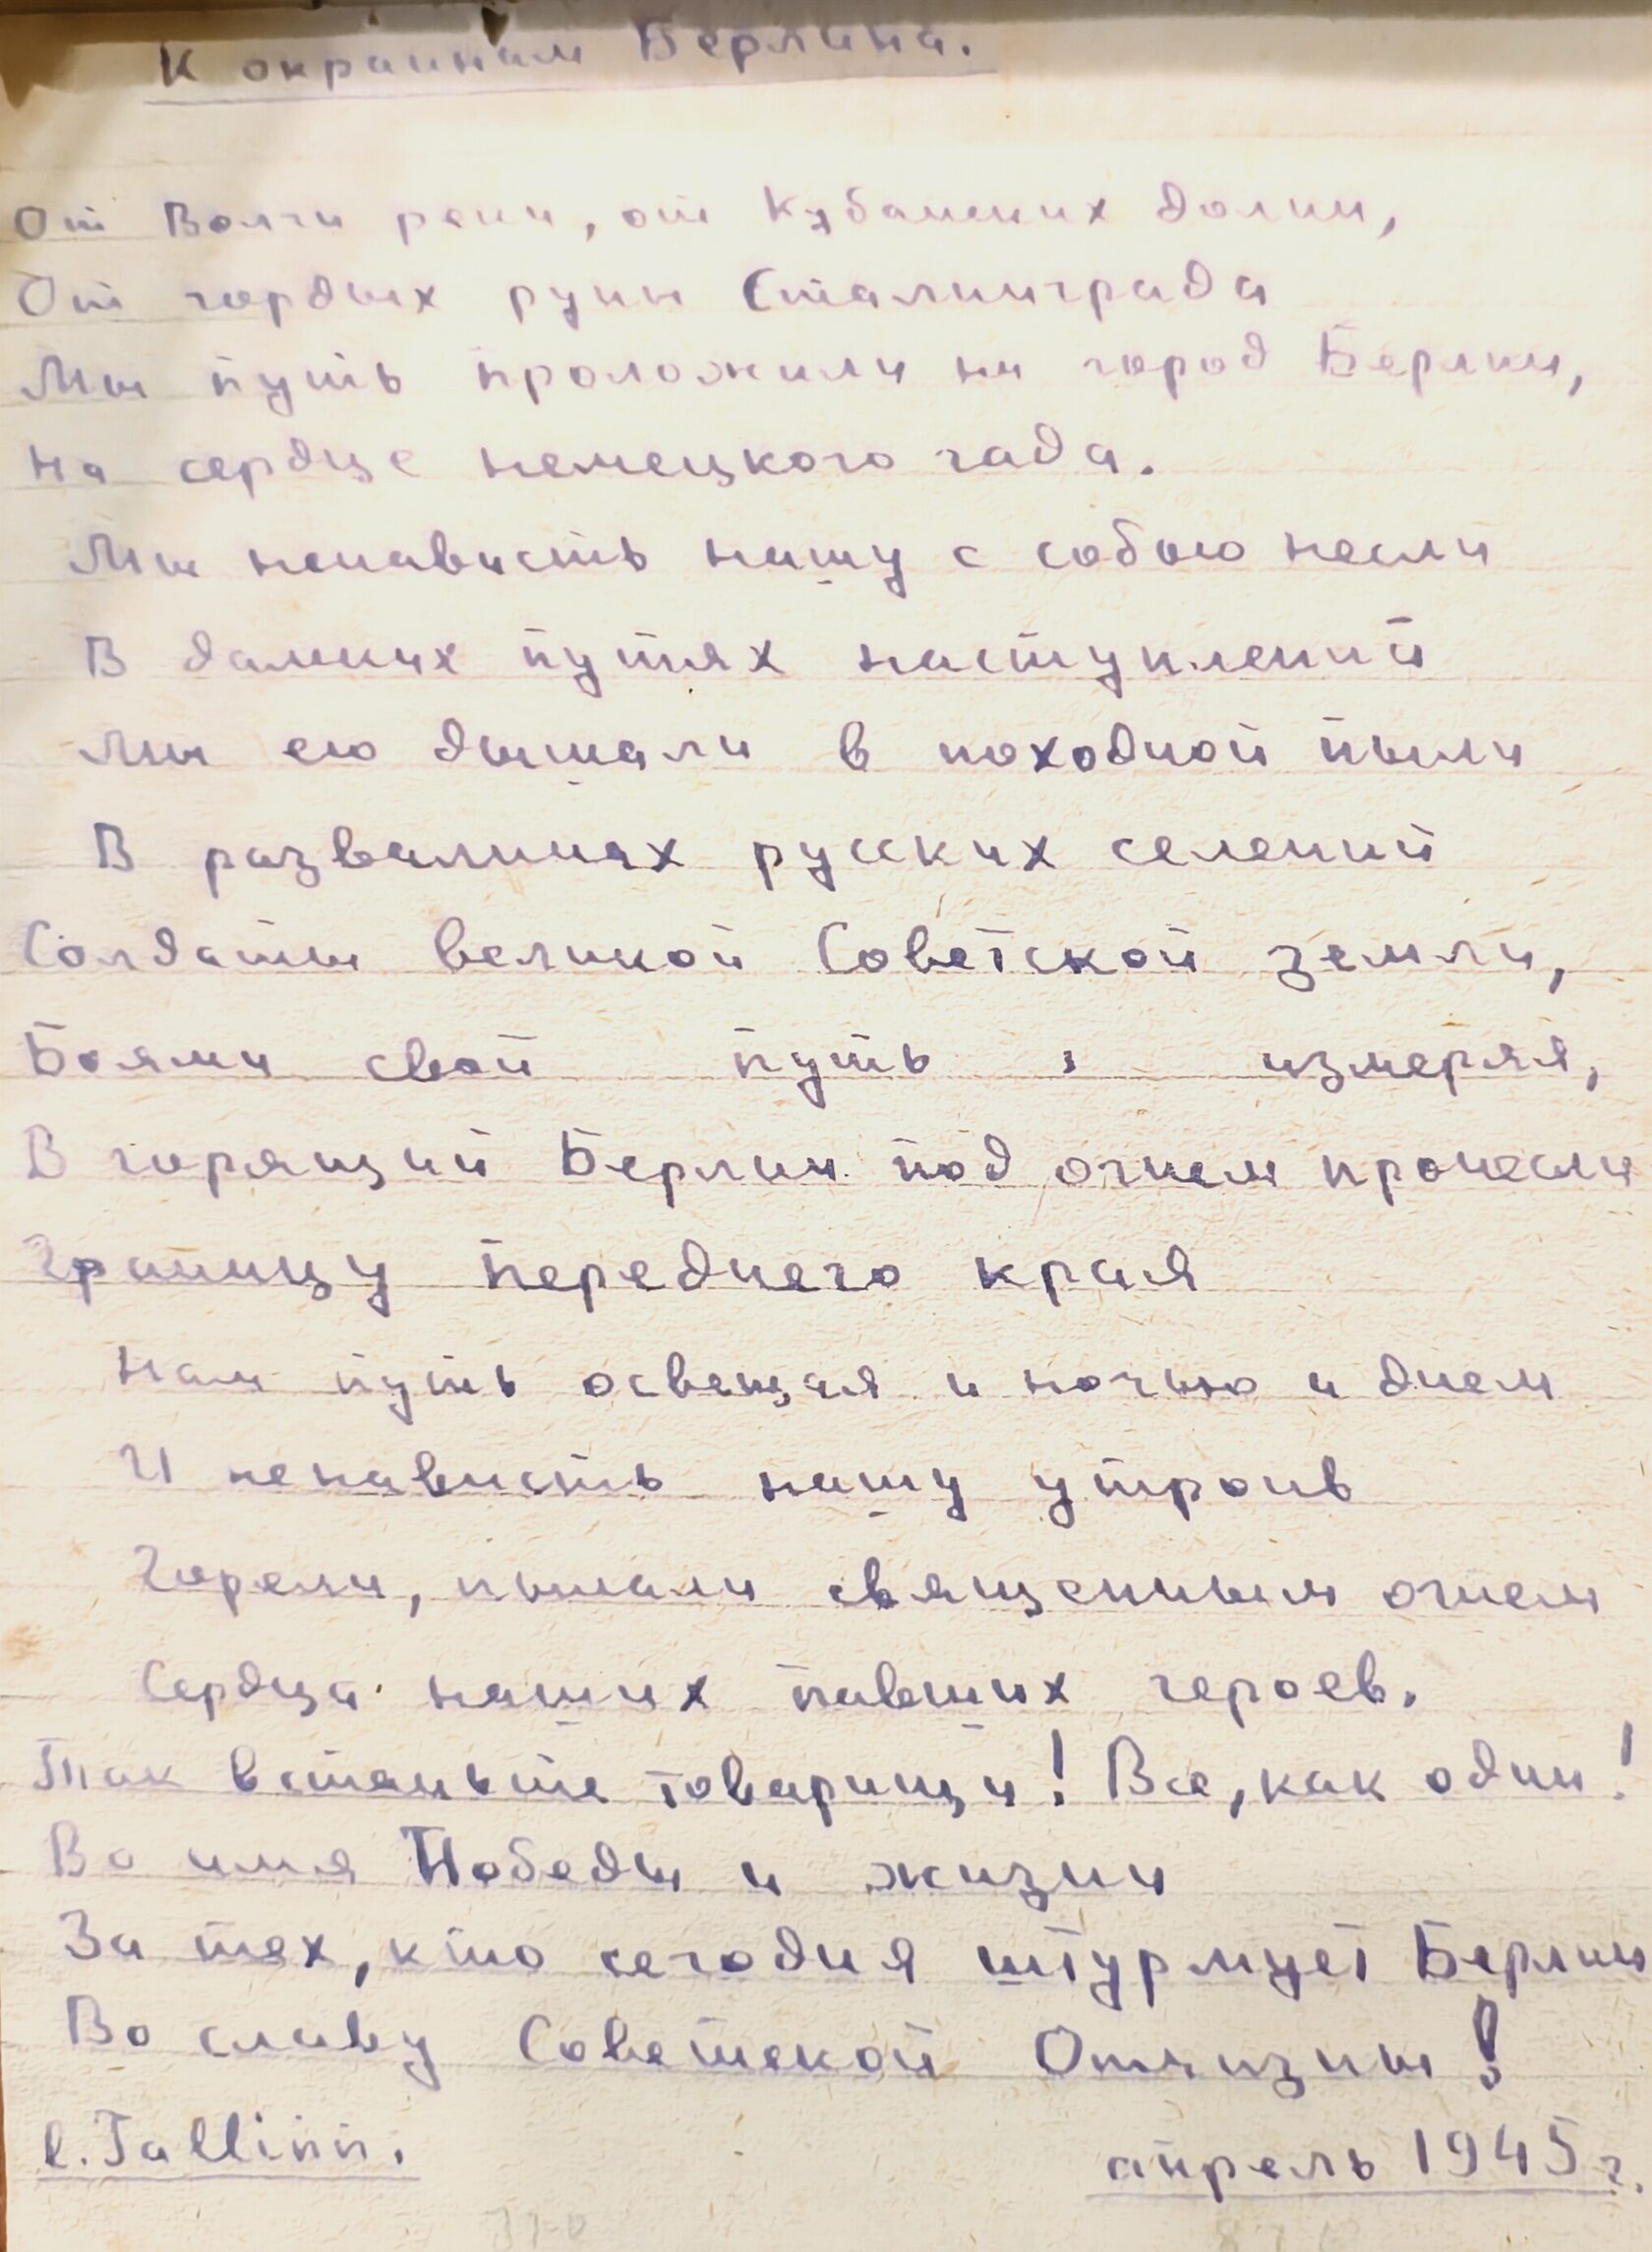 К окраинам Берлина.
От Волги реки, от Кубанских долин,
От гордых руин Сталинграда
Мы путь проложили на город Берлин,
На сердце немецкого гада.
Мы ненависть нашу с собою несли
В далеких путях наступлений
Мы ею дышали в походной пыли
В развалинах русских селений
Солдаты великой Советской земли,
Боями свой путь измеряя,
В горящий Берлин под огнем пронесли
Границу переднего края
Нам путь освещая и ночью и днем
И ненависть нашу утроив
Горели, пылали священным огнем
Сердца наших павших героев.
Так встаньте товарищи! Все, как один!
Во имя Победы и жизни
За тех, кто сегодня штурмует Берлин
Во славу Советской Отчизны!
l. Tallinn.
апрель 1945 г.